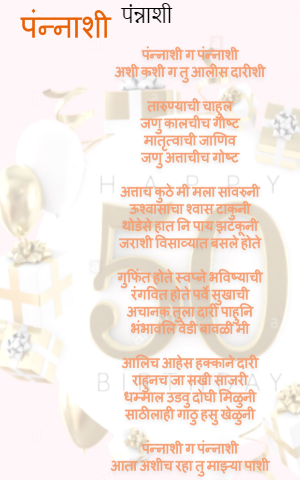 पंन्नाशी
पंन्नाशी
पंन्नाशी ग पंन्नाशी
अशी कशी ग तु आलीस दारीशी
तारुण्याची चाहूल
जणु कालचीच गोष्ट
मातृत्वाची जाणिव
जणु अत्ताचीच गोष्ट
HAPPY
अत्ताच कुठे मी मला सावरुनी
ऊश्वासाचा श्वास टाकुनी
थोडेसे हात नि पाय झटकूनी
जराशी विसाव्यात बसले होते
50
गुफिंत होते स्वप्ने भविष्याची
रंगवित होते पर्व सुखाची
अचानक तुला दारी पाहुनि
भंभावलि वेडी बावळी मी
आलिच आहेस हक्काने दारी
राहुनच जा सखी साजरी
BIRTHDAY
धम्माल उडवु दोघी मिळुनी
साठीलाही गाठु हसु खेळुनी
पंन्नाशी ग पंन्नाशी
आता अशीच रहा तु माझ्या पाशी